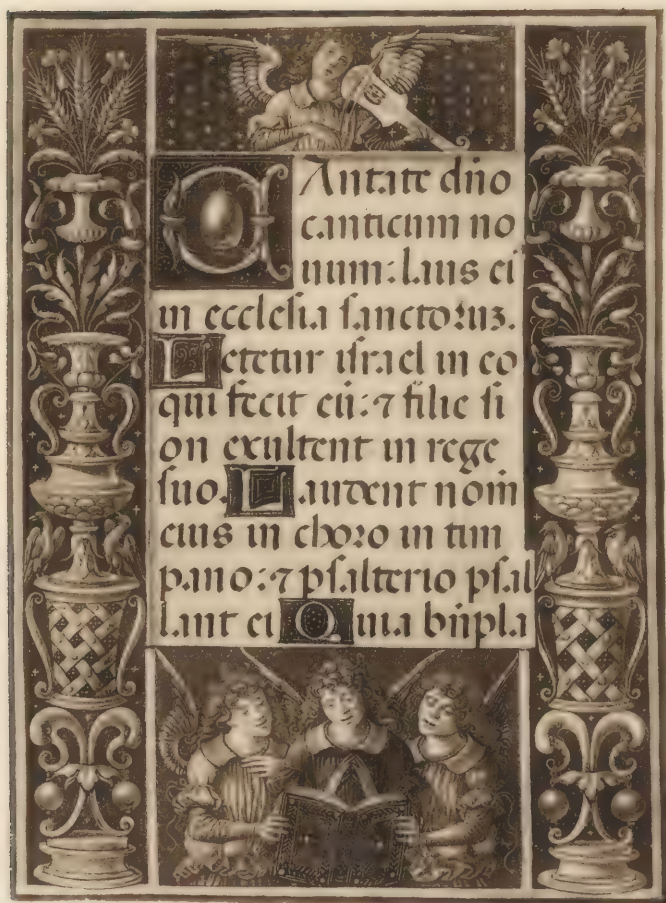 CAntate dño
canticum no
uum: laus eí
in ecclesia sanctoꝛuʒ.
Letetur israel in eo
qui fecit eū: ⁊ filie si
on exultent in rege
suo. Laudent nom̄
eius in choꝛo in tim
pano: ⁊ psalterio psal
lant ei Quia bn̄pla